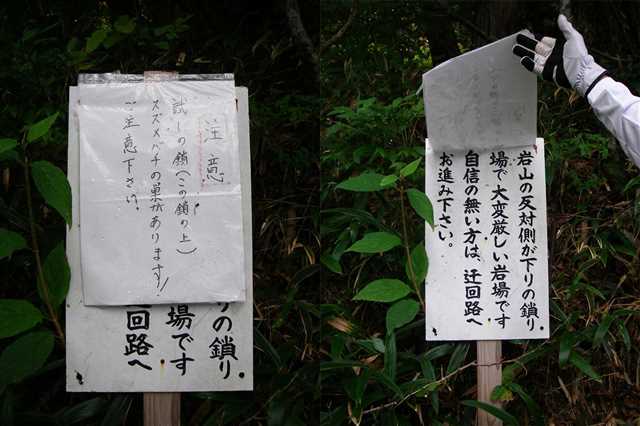 注意
試しの鎖(この鎖の上)
スズメバチの巣があります!
ご注意下さい。
りの鎖り
場です
迂回路へ
岩山の反対側が下りの鎖り
場で大変厳しい岩場です
自信の無い方は、迂回路へ
お進み下さい。